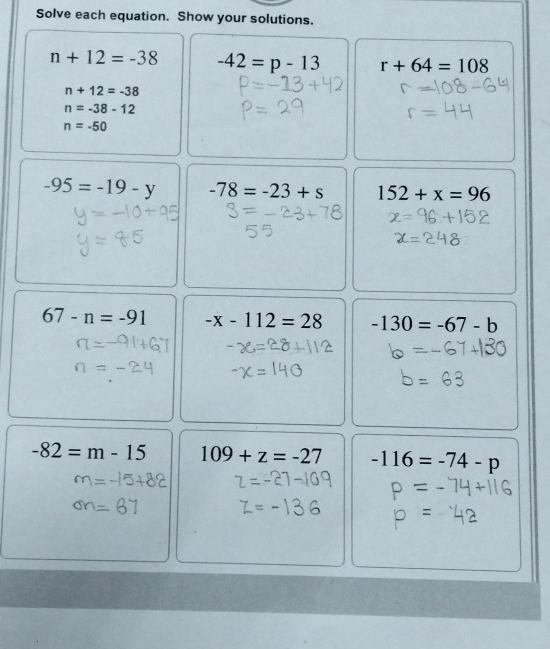 Solve each equation. Show your solutions.
n + 12 = -38
n + 12 = -38
n = -38 - 12
n = -50
-42 = p - 13
p=-13+42
p= 29
r + 64 = 108
r =108-64
r = 44
-95 = -19 - y
y=-10+95
y= 85
-78 = -23 + s
S= -23+78
55
152 + x = 96
x= 96+152
x=248
67 - n = -91
n=-91+67
n = -24
-x - 112 = 28
-x=28+112
-x=140
-130 = -67 - b
b =-67+130
b= 63
-82 = m - 15
m=-15+82
m= 67
109 + z = -27
z=-27-109
z=-136
-116 = -74 - p
p = -74+116
p = 42